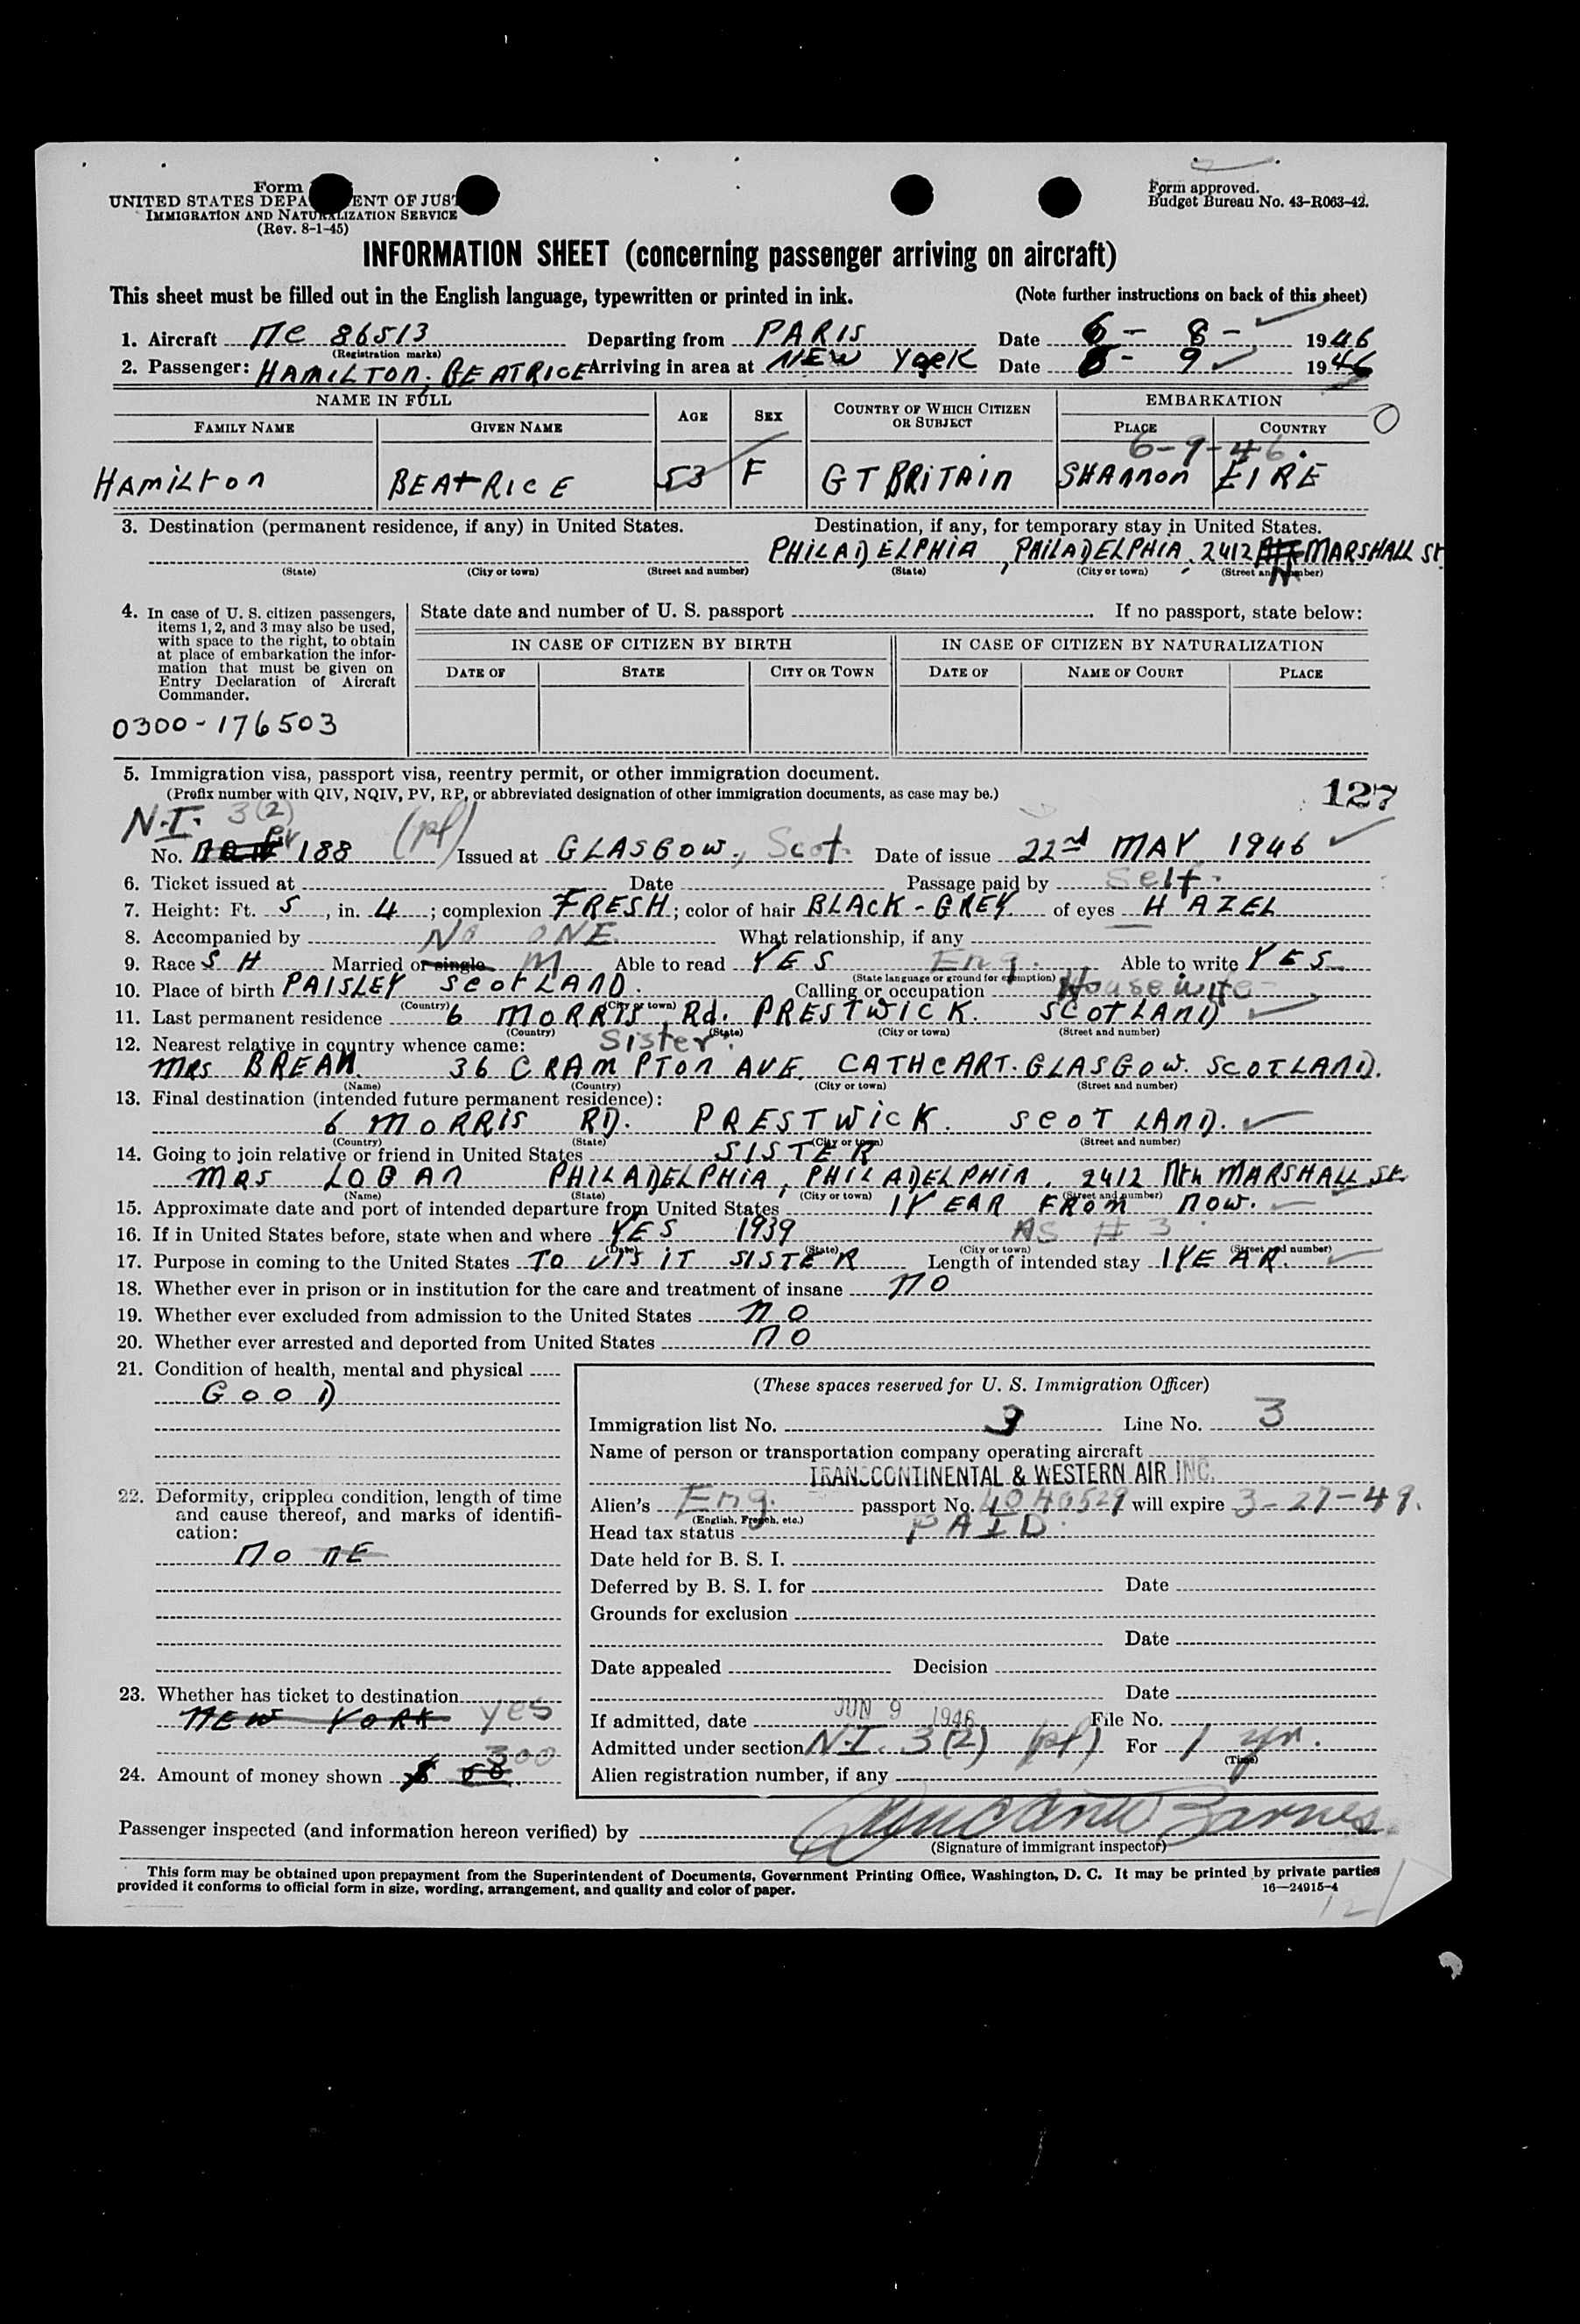 Form
UNITED STATES DEPA ENT OF JUST
IMMIGRATION AND NATURALIZATION SERVICE
(Rev. 8-1-45)
Form approved.
Budget Bureau No. 43-R063-42.
INFORMATION SHEET (concerning passenger arriving on aircraft)
This sheet must be filled out in the English language, typewritten or printed in ink. (Note further instructions on back of this sheet)
1. Aircraft NC 86513 Departing from PARIS Date 6 - 8 - 1946
(Registration marks)
2. Passenger: HAMILTON, BEATRICE Arriving in area at NEW YORK Date 6 - 9 1946
NAME IN FULL AGE SEX COUNTRY OF WHICH CITIZEN OR SUBJECT EMBARKATION
FAMILY NAME GIVEN NAME PLACE COUNTRY
6-9-46
HAMILTON BEATRICE 53 F GT BRITAIN SHANNON EIRE
3. Destination (permanent residence, if any) in United States. Destination, if any, for temporary stay in United States.
PHILADELPHIA, PHILADELPHIA, 2412 N MARSHALL ST.
(State) (City or town) (Street and number) (State) (City or town) (Street and number)
4. In case of U. S. citizen passengers, items 1, 2, and 3 may also be used, with space to the right, to obtain at place of embarkation the information that must be given on Entry Declaration of Aircraft Commander.
State date and number of U. S. passport If no passport, state below:
IN CASE OF CITIZEN BY BIRTH IN CASE OF CITIZEN BY NATURALIZATION
DATE OF STATE CITY OR TOWN DATE OF NAME OF COURT PLACE
0300-176503
5. Immigration visa, passport visa, reentry permit, or other immigration document.
(Prefix number with QIV, NQIV, PV, RP, or abbreviated designation of other immigration documents, as case may be.)
127
N.I. 3(2) (pl)
No. PV 188 Issued at GLASGOW, Scot. Date of issue 22nd MAY 1946
6. Ticket issued at Date Passage paid by Self.
7. Height: Ft. 5, in. 4; complexion FRESH; color of hair BLACK-GREY of eyes HAZEL
8. Accompanied by NO ONE. What relationship, if any
9. Race S H Married or single M Able to read YES Eng. Able to write YES
(State language or ground for exemption)
10. Place of birth PAISLEY SCOTLAND. Calling or occupation Housewife
(Country) (City or town)
11. Last permanent residence 6 MORRIS Rd. PRESTWICK. SCOTLAND
(Country) (State) (City or town) (Street and number)
12. Nearest relative in country whence came: Sister.
MRS BREAN. 36 CRAMPTON AVE. CATHCART. GLASGOW. SCOTLAND.
(Name) (Country) (City or town) (Street and number)
13. Final destination (intended future permanent residence):
6 MORRIS RD. PRESTWICK. SCOTLAND.
(Country) (State) (City or town) (Street and number)
14. Going to join relative or friend in United States SISTER
MRS LOGAN PHILADELPHIA, PHILADELPHIA, 2412 Nth MARSHALL St.
(Name) (State) (City or town) (Street and number)
15. Approximate date and port of intended departure from United States 1 YEAR FROM NOW.
16. If in United States before, state when and where YES 1939 AS # 3
(Date) (State) (City or town) (Street and number)
17. Purpose in coming to the United States TO VISIT SISTER Length of intended stay 1 YEAR.
18. Whether ever in prison or in institution for the care and treatment of insane NO
19. Whether ever excluded from admission to the United States NO
20. Whether ever arrested and deported from United States NO
21. Condition of health, mental and physical
GOOD
22. Deformity, crippled condition, length of time and cause thereof, and marks of identification:
NONE
23. Whether has ticket to destination
NEW YORK yes
300
24. Amount of money shown
(These spaces reserved for U. S. Immigration Officer)
Immigration list No. 3 Line No. 3
Name of person or transportation company operating aircraft
TRANSCONTINENTAL & WESTERN AIR INC.
Alien's Eng. passport No. will expire 3-27-49.
(English, French, etc.)
Head tax status PAID
Date held for B. S. I.
Deferred by B. S. I. for Date
Grounds for exclusion
Date
Date appealed Decision
Date
If admitted, date JUN 9 1946 File No.
Admitted under section N.I. 3(2) (pl) For 1 yr.
(Time)
Alien registration number, if any
Passenger inspected (and information hereon verified) by Barnes
(Signature of immigrant inspector)
This form may be obtained upon prepayment from the Superintendent of Documents, Government Printing Office, Washington, D. C. It may be printed by private parties
provided it conforms to official form in size, wording, arrangement, and quality and color of paper. 16—24915-4